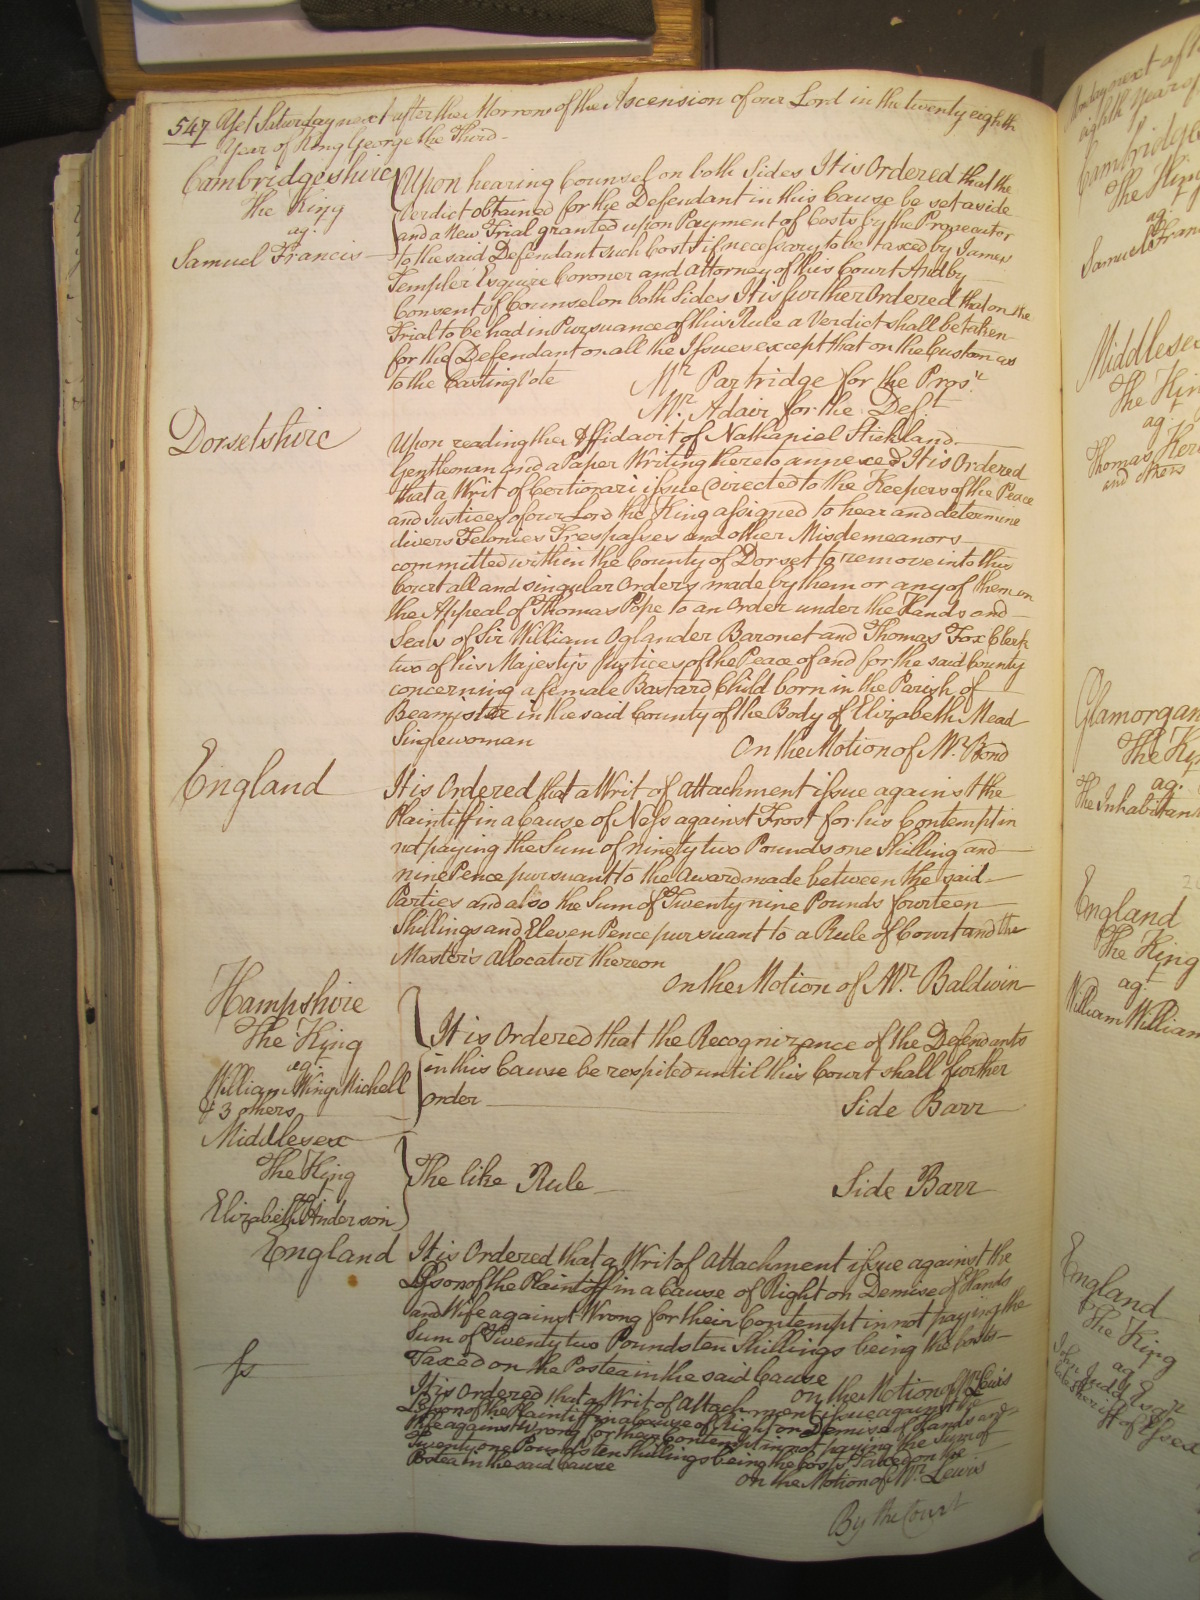 547 Yet Saturday next after the Morrow of the Ascension of our Lord in the twenty eighth
Year of King George the Third
Cambridgeshire
The King
ag.t
Samuel Francis
Upon hearing Counsel on both Sides It is Ordered that the
Verdict obtained for the Defendant in this Cause be set aside
and a New Trial granted upon Payment of Costs by the Prosecutor
to the said Defendant such Costs if necessary to be taxed by James
Templer Esquire Coroner and Attorney of this Court And by
Consent of Counsel on both Sides It is further Ordered that on the
Trial to be had in Pursuance of this Rule a Verdict shall be taken
for the Defendant on all the Issues except that on the Custom as
to the Casting Vote
Mr. Partridge for the Pros.r
Mr. Adair for the Def.t
Dorsetshire
Upon reading the Affidavit of Nathaniel Stickland
Gentleman and a Paper Writing thereto annexed It is Ordered
that a Writ of Certiorari issue directed to the Keepers of the Peace
and Justices of our Lord the King assigned to hear and determine
divers Felonies Trespasses and other Misdemeanors
committed within the County of Dorset to remove into this
Court all and singular Orders made by them or any of them on
the Appeal of Thomas Pope to an Order under the Hands and
Seals of Sir William Oglander Baronet and Thomas Fox Clerk
two of his Majesty's Justices of the Peace of and for the said County
concerning a female Bastard Child born in the Parish of
Beamister in the said County of the Body of Elizabeth Mead
Singlewoman
On the Motion of Mr. Bond
England
It is Ordered that a Writ of Attachment issue against the
Plaintiff in a Cause of Ness against Frost for his Contempt in
not paying the Sum of ninety two Pounds one Shilling and
nine Pence pursuant to the Award made between the said
Parties and also the Sum of Twenty nine Pounds fourteen
Shillings and Eleven Pence pursuant to a Rule of Court and the
Master's Allocatur thereon
On the Motion of Mr. Baldwin
Hampshire
The King
ag.t
William Wing Michell
& 3 others
It is Ordered that the Recognizance of the Defendants
in this Cause be respited until this Court shall further
order
Side Barr
Middlesex
The King
Elizabeth Anderson
The like Rule
Side Barr
England
It is Ordered that a Writ of Attachment issue against the
Lessor of the Plaintiff in a Cause of Right on Demise of Hands
and Wife against Wrong for their Contempt in not paying the
Sum of Twenty two Pounds ten Shillings being the Costs
Taxed on the Postea in the said Cause
On the Motion of Mr. Lewis
It is Ordered that a Writ of Attachment issue against the
Lessor of the Plaintiff in a Cause of Right on Demise of Hands and
Wife against Wrong for their Contempt in not paying the Sum of
Twenty one Pounds ten Shillings being the Costs Taxed on the
Postea in the said Cause
On the Motion of Mr. Lewis
By the Court
Cambridge
The King
ag.t
Samuel Fran
Middlesex
The Kin
ag.t
Thomas Ker
and others
Glamorgan
The Ki
ag.t
The Inhabitan
England
The King
ag.t
William William
England
The King
ag.t
John Judd
late Sheriff of Essex